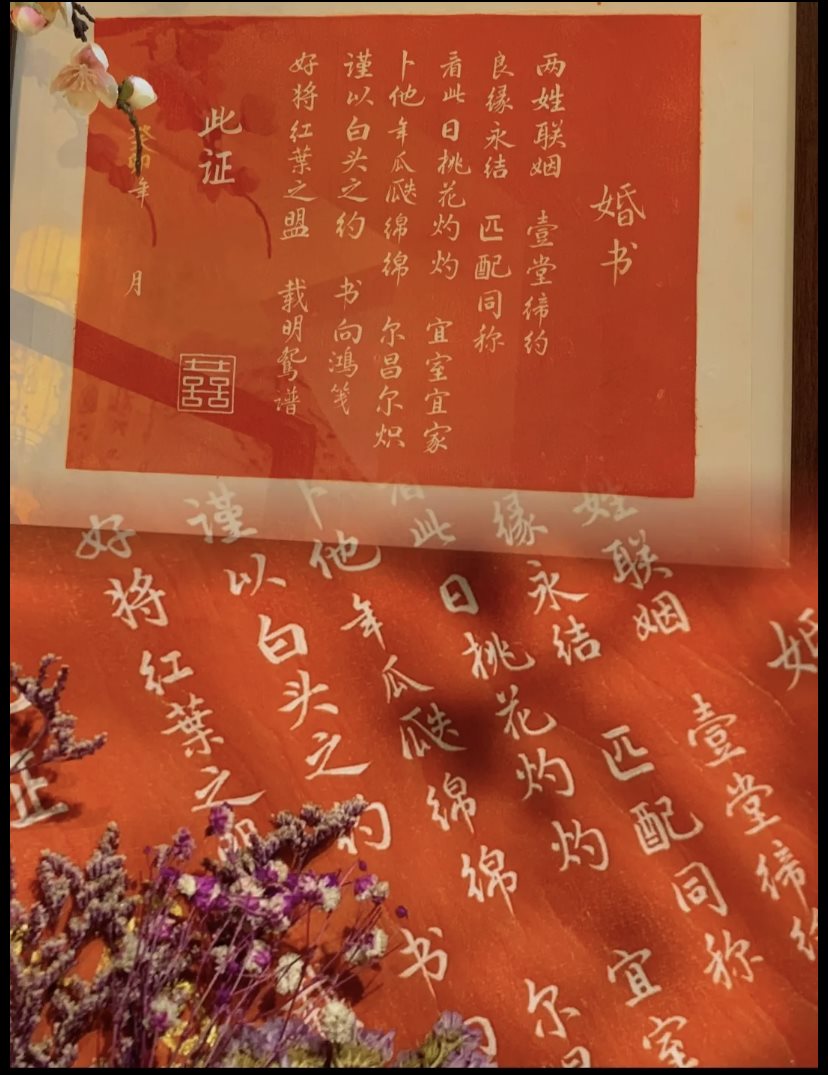 婚书
两姓联姻 壹堂缔约
良缘永结 匹配同称
看此日桃花灼灼 宜室宜家
卜他年瓜瓞绵绵 尔昌尔炽
谨以白头之约 书向鸿笺
好将红葉之盟 载明鸳谱
此证
癸卯年 月
囍
婚
姓联姻 壹堂缔约
缘永结 匹配同称
看此日桃花灼灼 宜室
卜他年瓜瓞绵绵 尔昌
谨以白头之约 书
好将红葉之盟
证